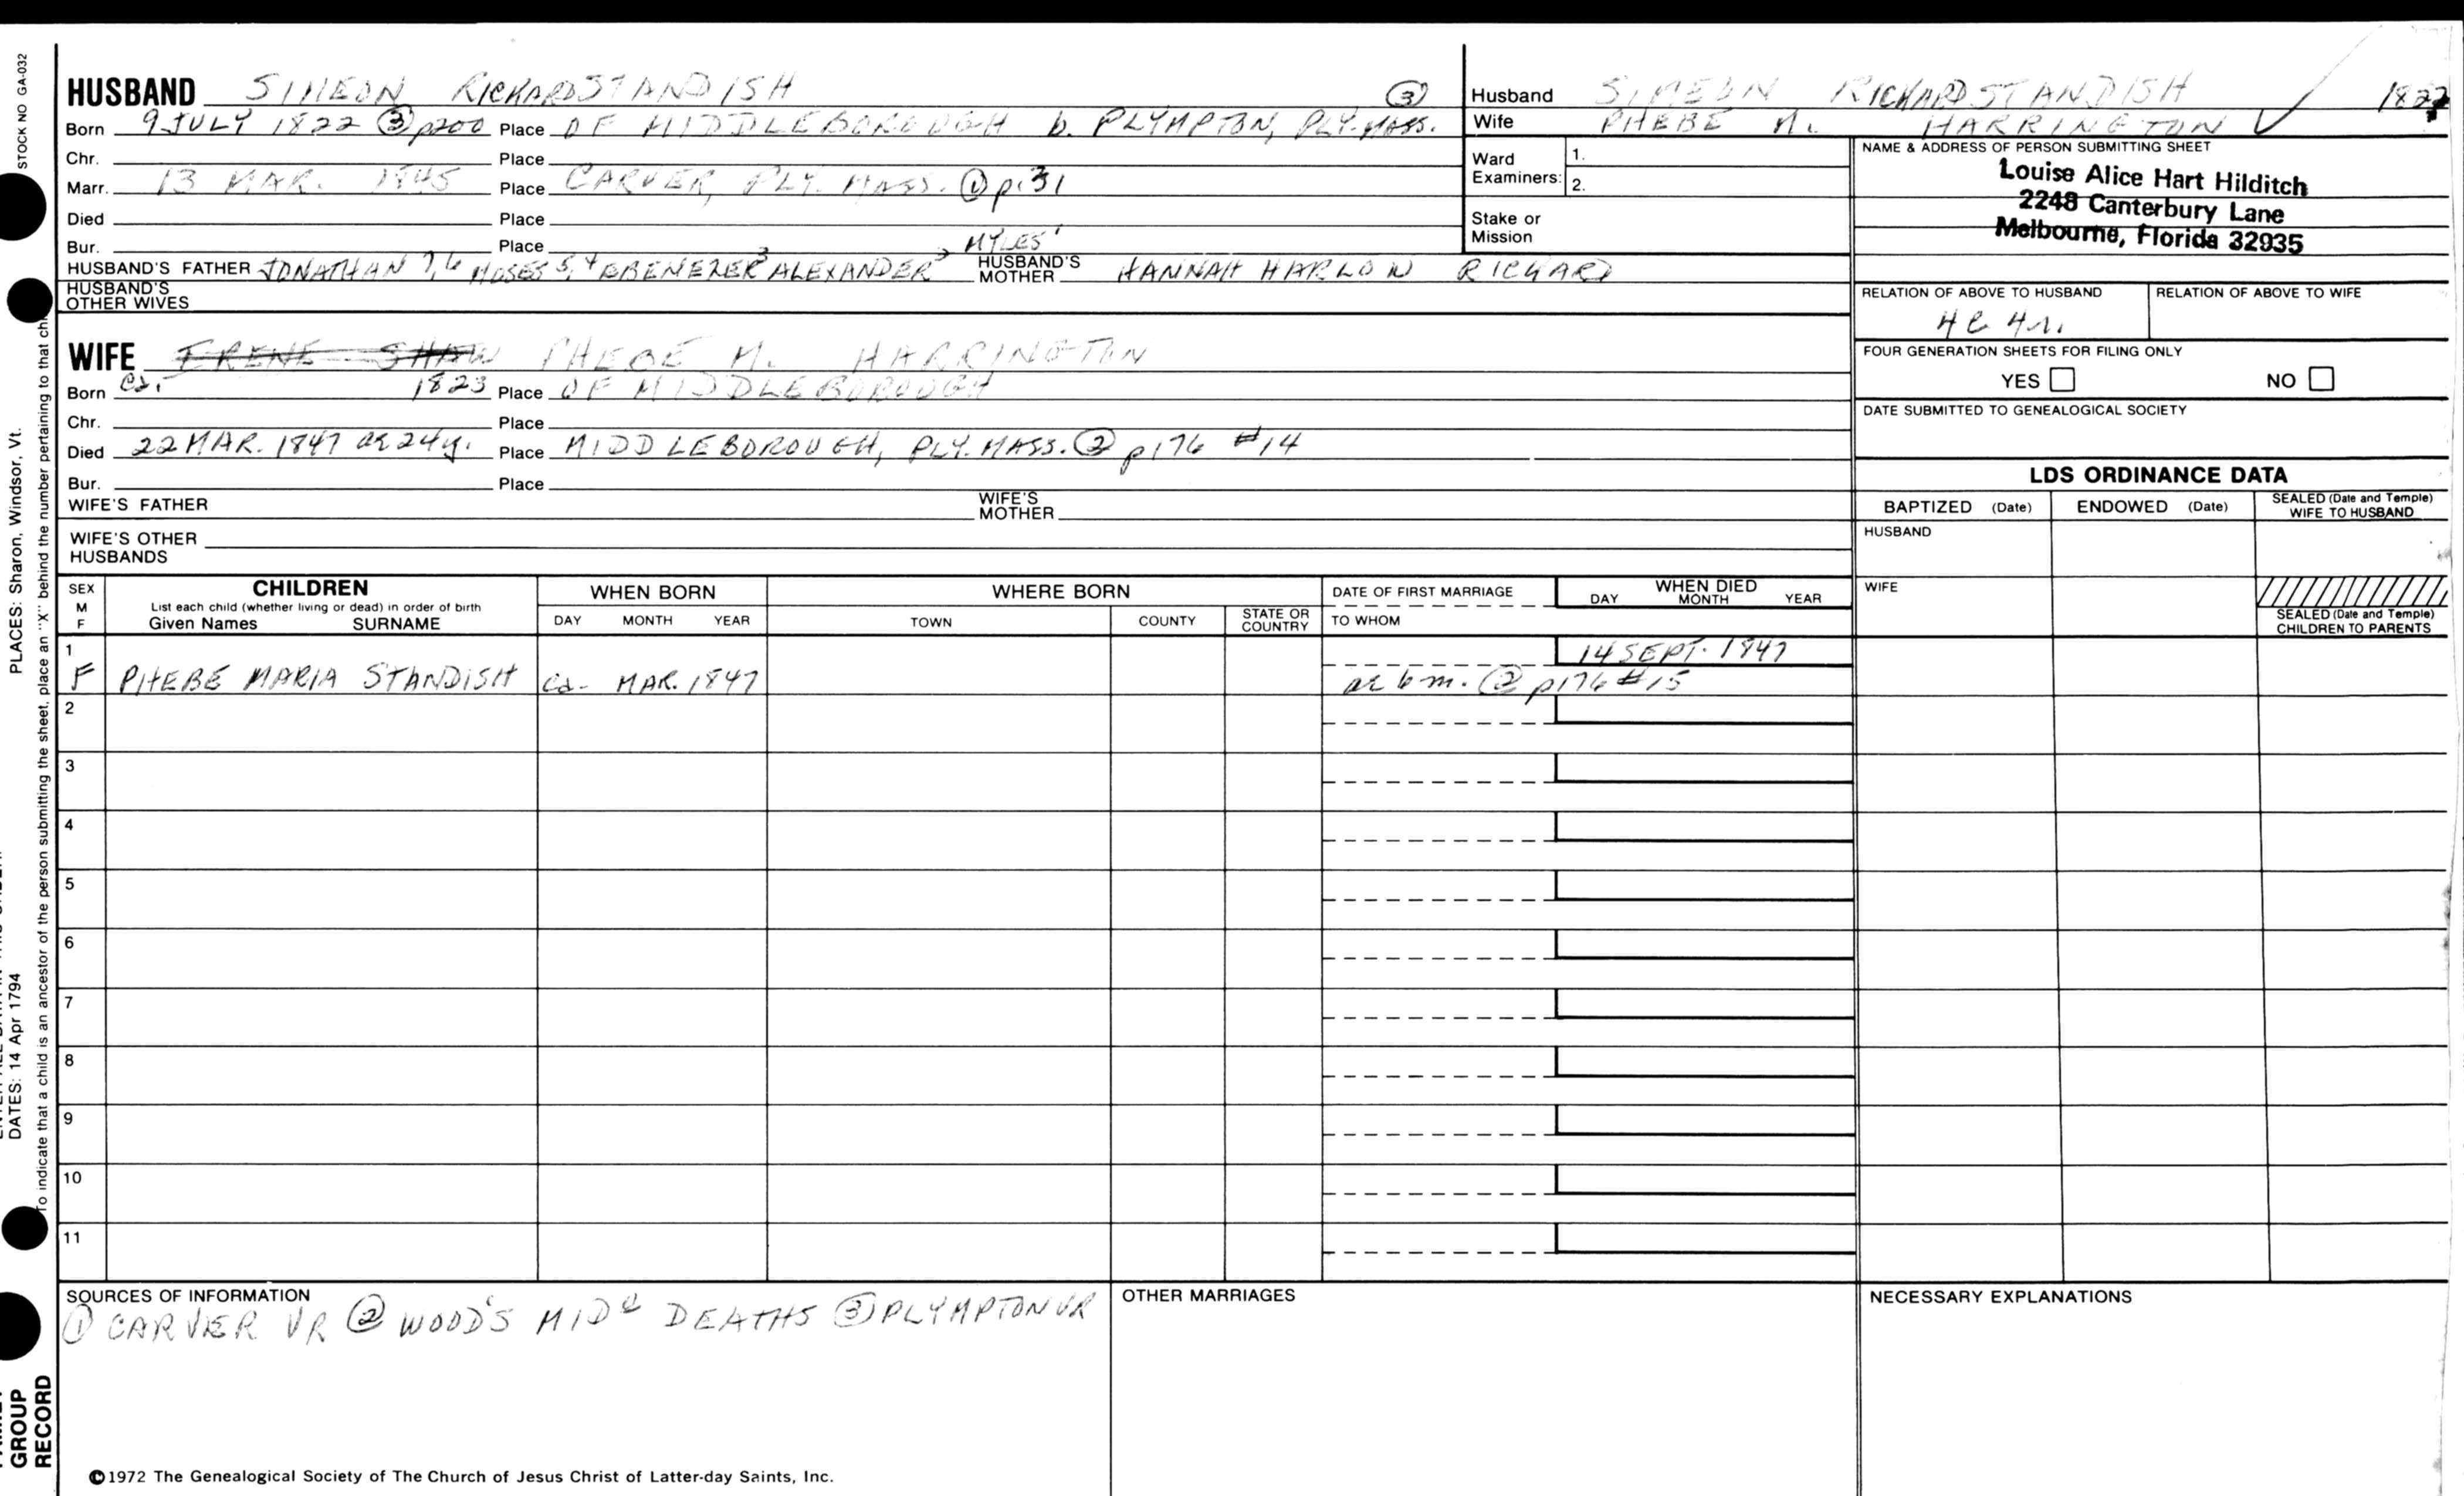 STOCK NO GA-032
HUSBAND SIMEON RICKARD STANDISH
Born 9 JULY 1822 ③ p200 Place OF MIDDLEBOROUGH b. PLYMPTON, PLY. MASS. ③
Chr. Place
Marr. 13 MAR. 1845 Place CARVER, PLY. MASS. ① p.31
Died Place
Bur. Place
HUSBAND'S FATHER JONATHAN 7,6 MOSES 5,4 EBENEZER 3 ALEXANDER 2 MYLES 1 HUSBAND'S MOTHER HANNAH HARLOW RICKARD
HUSBAND'S OTHER WIVES
WIFE IRENE SHAW PHEBE M. HARRINGTON
Born ca. 1823 Place OF MIDDLEBOROUGH
Chr. Place
Died 22 MAR. 1847 ae 24y. Place MIDDLEBOROUGH, PLY. MASS. ② p176 #14
Bur. Place
WIFE'S FATHER WIFE'S MOTHER
WIFE'S OTHER HUSBANDS
Husband SIMEON RICKARD STANDISH 1822
Wife PHEBE M. HARRINGTON
Ward Examiners: 1.
2.
Stake or Mission
NAME & ADDRESS OF PERSON SUBMITTING SHEET
Louise Alice Hart Hilditch
2248 Canterbury Lane
Melbourne, Florida 32935
RELATION OF ABOVE TO HUSBAND RELATION OF ABOVE TO WIFE
4C 4r.
FOUR GENERATION SHEETS FOR FILING ONLY
YES NO
DATE SUBMITTED TO GENEALOGICAL SOCIETY
LDS ORDINANCE DATA
BAPTIZED (Date) ENDOWED (Date) SEALED (Date and Temple) WIFE TO HUSBAND
HUSBAND
WIFE
SEALED (Date and Temple) CHILDREN TO PARENTS
SEX M F
CHILDREN
List each child (whether living or dead) in order of birth
Given Names SURNAME
WHEN BORN
DAY MONTH YEAR
WHERE BORN
TOWN COUNTY STATE OR COUNTRY
DATE OF FIRST MARRIAGE
TO WHOM
WHEN DIED
DAY MONTH YEAR
1 14 SEPT. 1847
F PHEBE MARIA STANDISH ca. MAR. 1847 ae 6 m. ② p176 #15
2
3
4
5
6
7
8
9
10
11
SOURCES OF INFORMATION
① CARVER VR ② WOOD'S MIDd DEATHS ③ PLYMPTON VR
OTHER MARRIAGES
NECESSARY EXPLANATIONS
©1972 The Genealogical Society of The Church of Jesus Christ of Latter-day Saints, Inc.
PLACES: Sharon, Windsor, Vt.
DATES: 14 Apr 1794
To indicate that a child is an ancestor of the person submitting the sheet, place an "X" behind the number pertaining to that
GROUP
RECORD